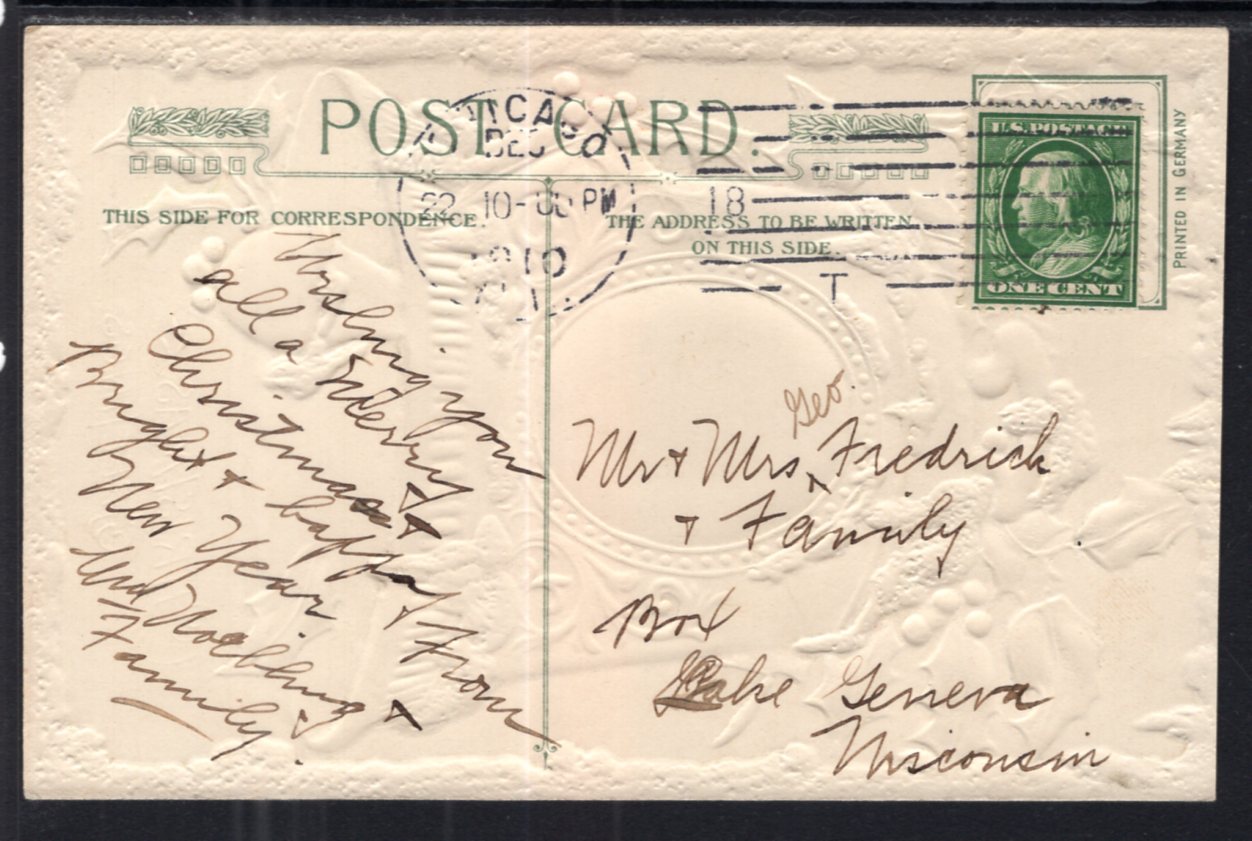 POST CARD.
CHICAGO
DEC
22 10-00 PM
1910
ILL.
18
T
U.S. POSTAGE
ONE CENT
PRINTED IN GERMANY
THIS SIDE FOR CORRESPONDENCE.
THE ADDRESS TO BE WRITTEN
ON THIS SIDE.
Wishing you
all a Merry
Christmas +
Bright + happy
New Year From
+
Family.
Geo.
Mr + Mrs Fredrick
+ Family
Box
Lake Geneva
Wisconsin